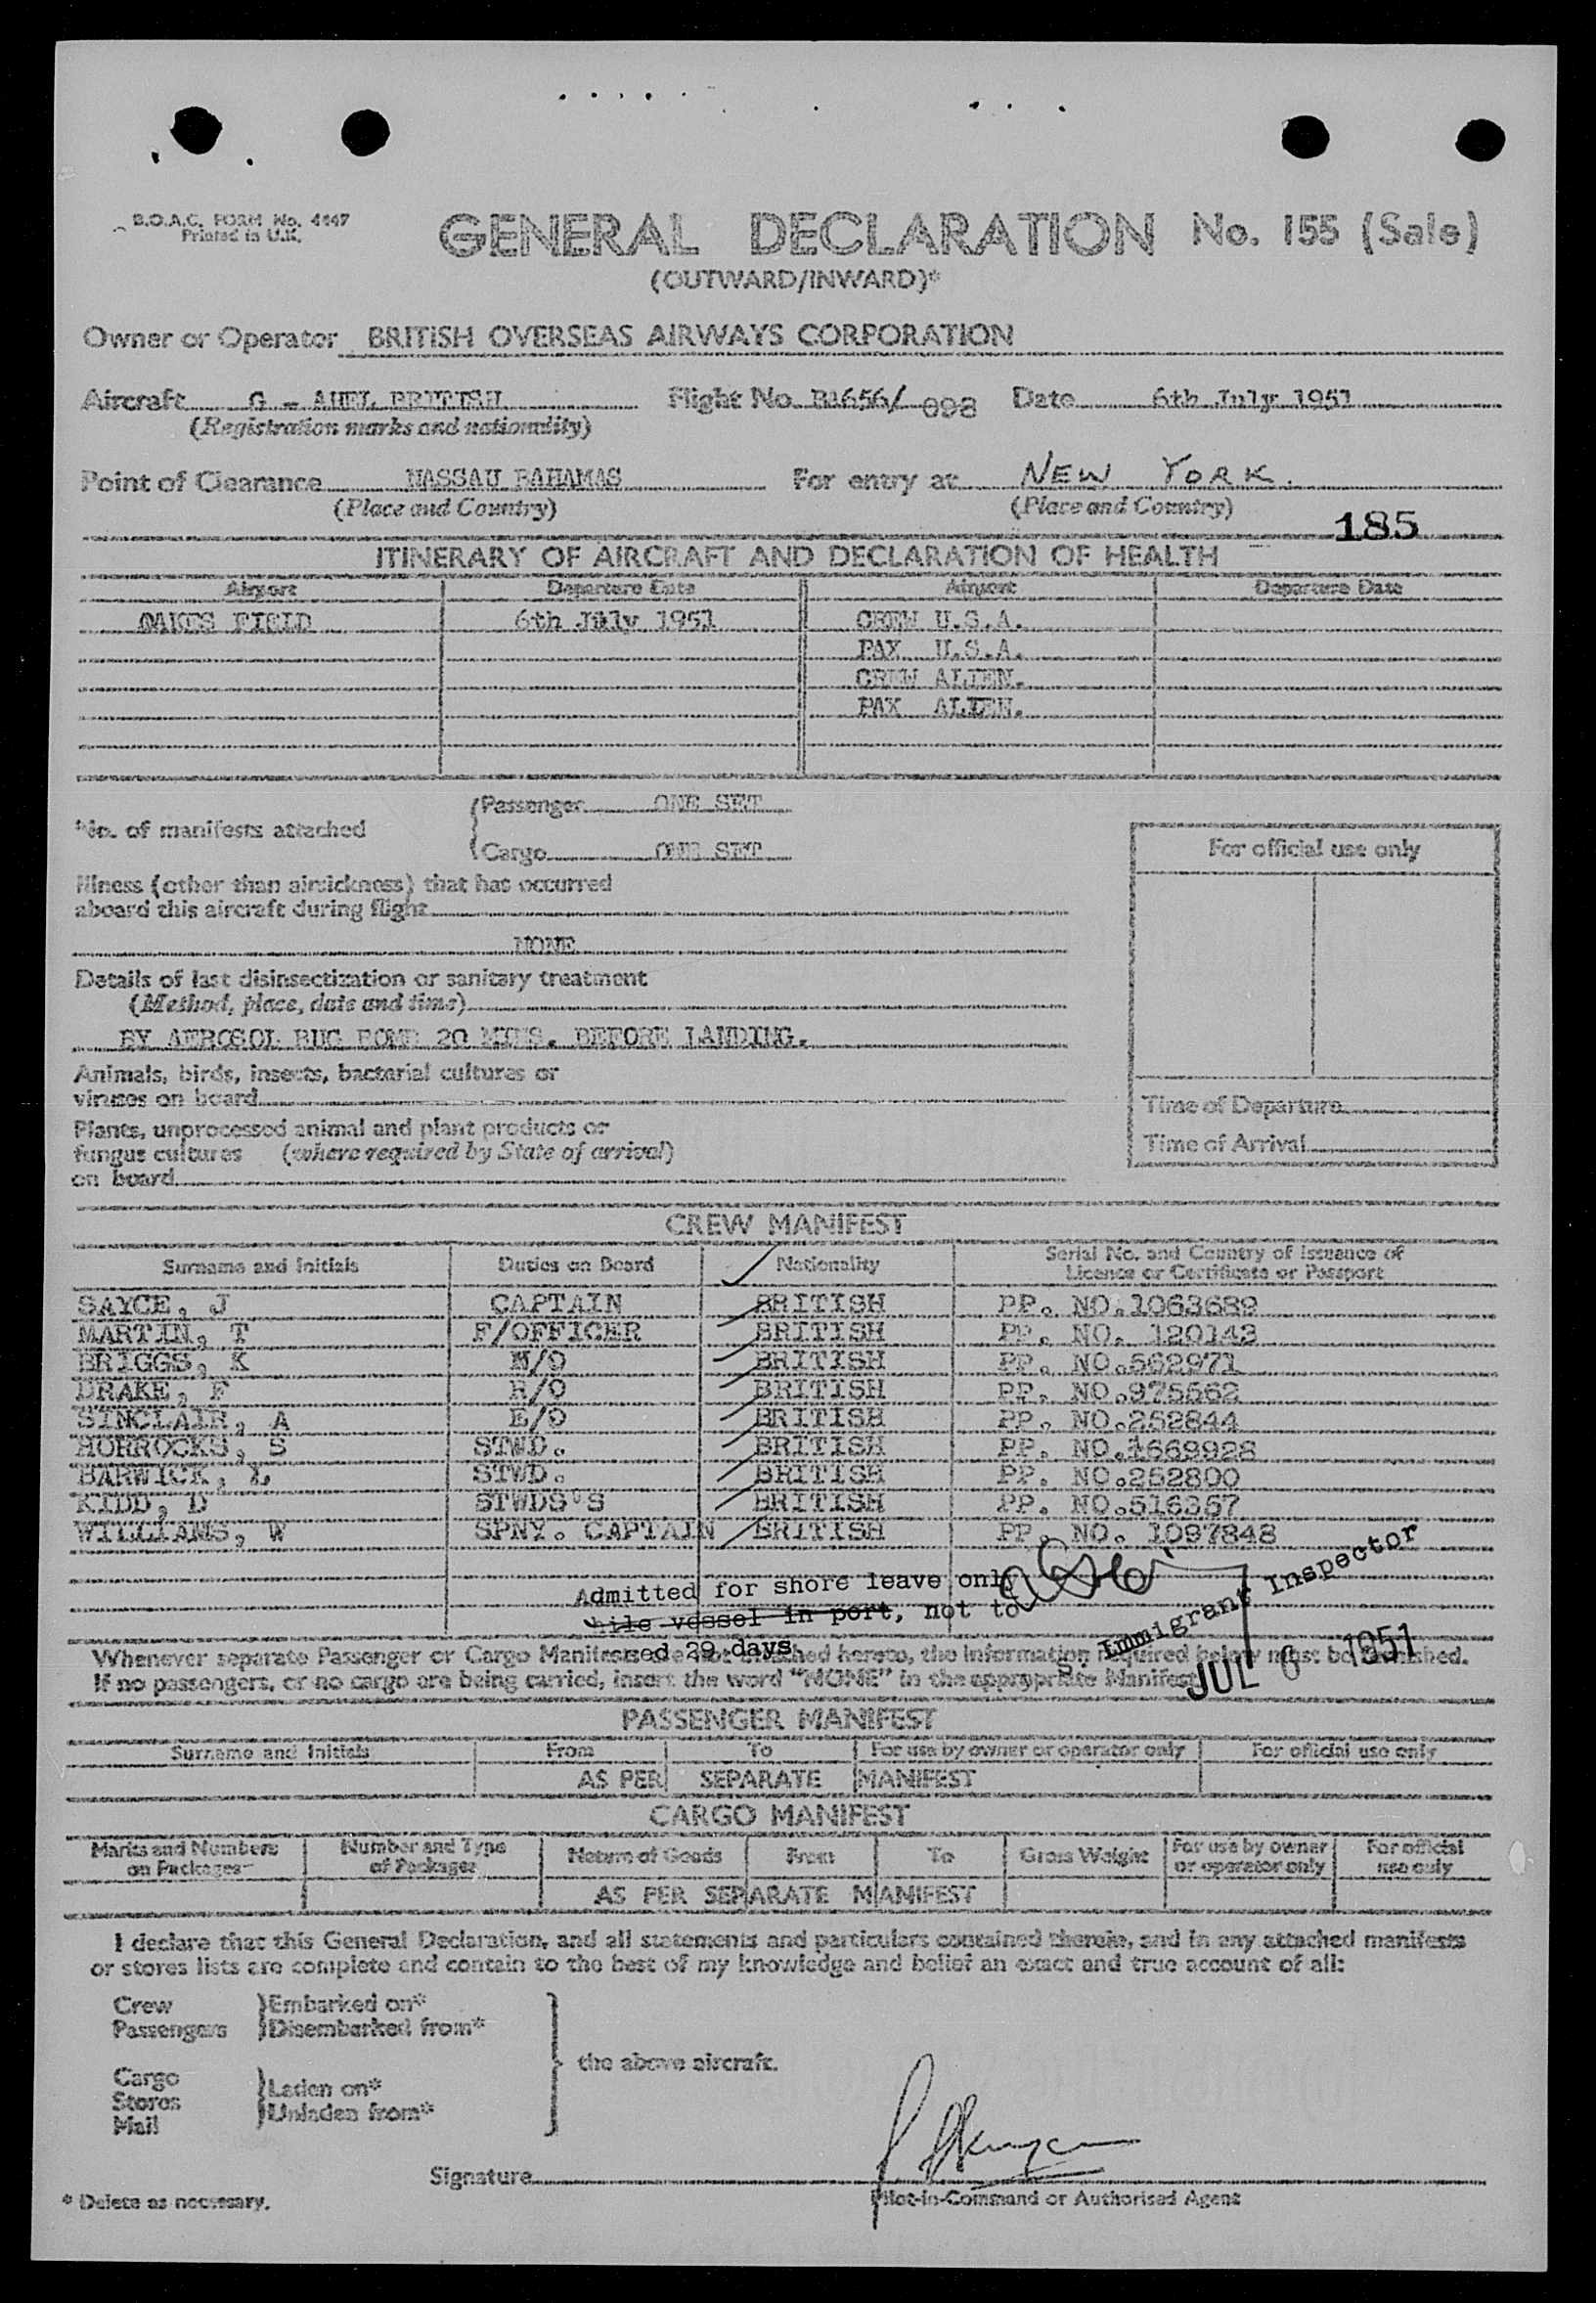 B.O.A.C. FORM No. 4447
Printed in U.K.
GENERAL DECLARATION No. 155 (Sale)
(OUTWARD/INWARD)*
Owner or Operator BRITISH OVERSEAS AIRWAYS CORPORATION
Aircraft G - AHEL BRITISH Flight No. BA656/ 098 Date 6th July 1951
(Registration marks and nationality)
Point of Clearance NASSAU BAHAMAS For entry at NEW YORK.
(Place and Country) (Place and Country)
185
ITINERARY OF AIRCRAFT AND DECLARATION OF HEALTH
Airport Departure Date Airport Departure Date
OAKES FIELD 6th July 1951 CREW U.S.A.
PAX U.S.A.
CREW ALIEN.
PAX ALIEN.
No. of manifests attached
Passenger ONE SET
Cargo ONE SET
For official use only
Illness (other than airsickness) that has occurred
aboard this aircraft during flight
NONE
Details of last disinsectization or sanitary treatment
(Method, place, date and time)
BY AEROSOL BUG BOMB 20 MINS. BEFORE LANDING.
Animals, birds, insects, bacterial cultures or
viruses on board
Plants, unprocessed animal and plant products or
fungus cultures (where required by State of arrival)
on board
Time of Departure
Time of Arrival
CREW MANIFEST
Surname and Initials Duties on Board Nationality Serial No. and Country of Issuance of
Licence or Certificate or Passport
SAYCE, J CAPTAIN BRITISH PP. NO.1063689
MARTIN, T F/OFFICER BRITISH PP. NO. 120143
BRIGGS, K N/O BRITISH PP. NO.562971
DRAKE, F R/O BRITISH PP. NO.975562
SINCLAIR, A E/O BRITISH PP. NO.252844
HORROCKS, S STWD. BRITISH PP. NO.1669928
BARWICK, L STWD. BRITISH PP. NO.252800
KIDD, D STWDS'S BRITISH PP. NO.516367
WILLIAMS, W SPNY. CAPTAIN BRITISH PP. NO. 1097848
Admitted for shore leave only
hile vessel in port, not to
ceed 29 days
Immigrant Inspector
JUL 6 1951
Whenever separate Passenger or Cargo Manifests are not attached hereto, the information required below must be furnished.
If no passengers, or no cargo are being carried, insert the word "NONE" in the appropriate Manifest.
PASSENGER MANIFEST
Surname and Initials From To For use by owner or operator only For official use only
AS PER SEPARATE MANIFEST
CARGO MANIFEST
Marks and Numbers on Packages Number and Type of Packages Nature of Goods From To Gross Weight For use by owner or operator only For official use only
AS PER SEPARATE MANIFEST
I declare that this General Declaration, and all statements and particulars contained therein, and in any attached manifests
or stores lists are complete and contain to the best of my knowledge and belief an exact and true account of all:
Crew Embarked on*
Passengers Disembarked from*
the above aircraft.
Cargo
Stores Laden on*
Mail Unladen from*
Signature
* Delete as necessary.
Pilot-in-Command or Authorised Agent